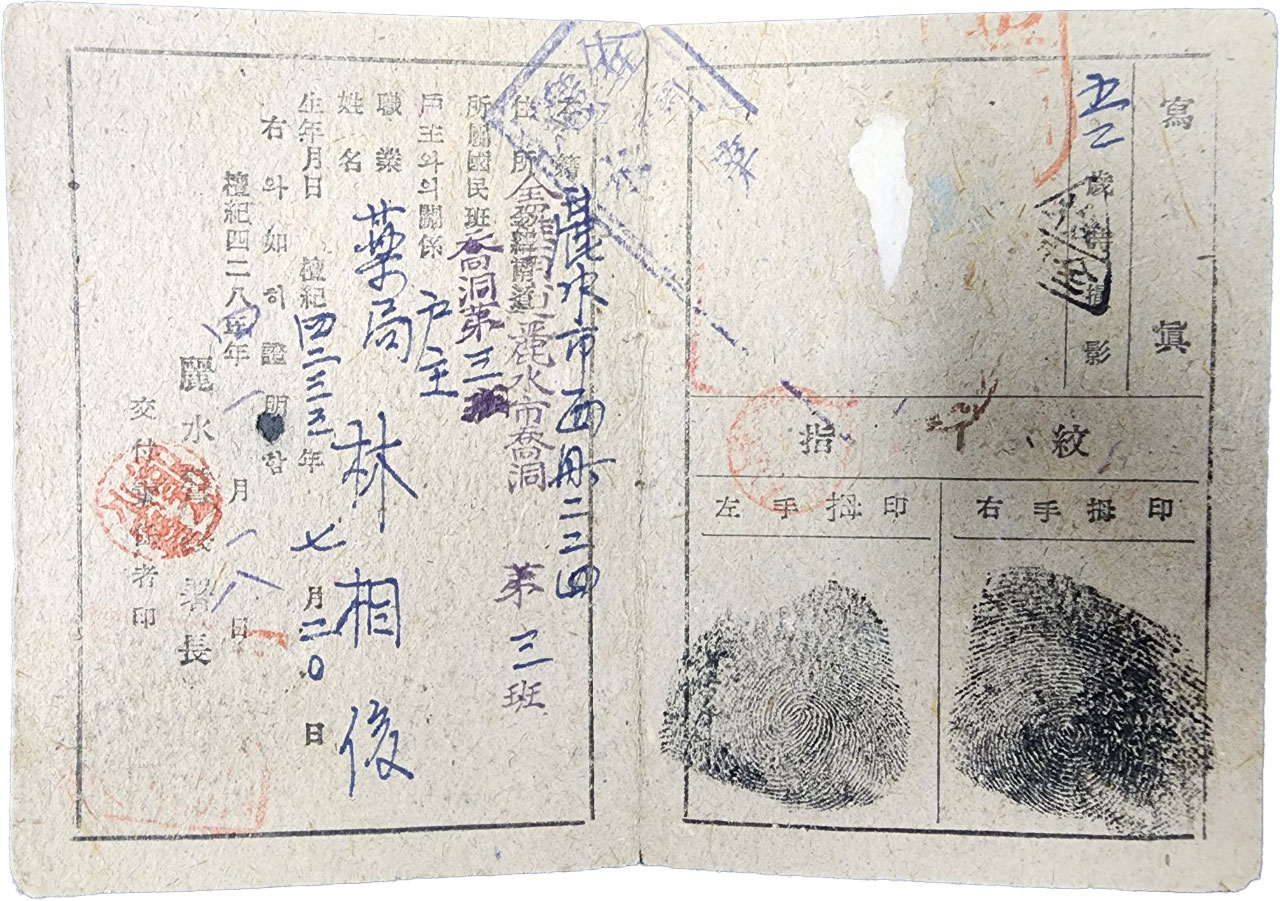 寫眞
五二歲時撮影
指紋
右手拇印
左手拇印
本籍 麗水市西町二二四
住所 全羅南道麗水市喬洞 第三班
所屬國民班 喬洞第三班
戶主와의關係 戶主
職業 藥局
姓名 林相俊
生年月日 檀紀四二三三年七月二〇日
右와如히證明함
檀紀四二八四年一月一八日
麗水警察署長
交付事務 者印